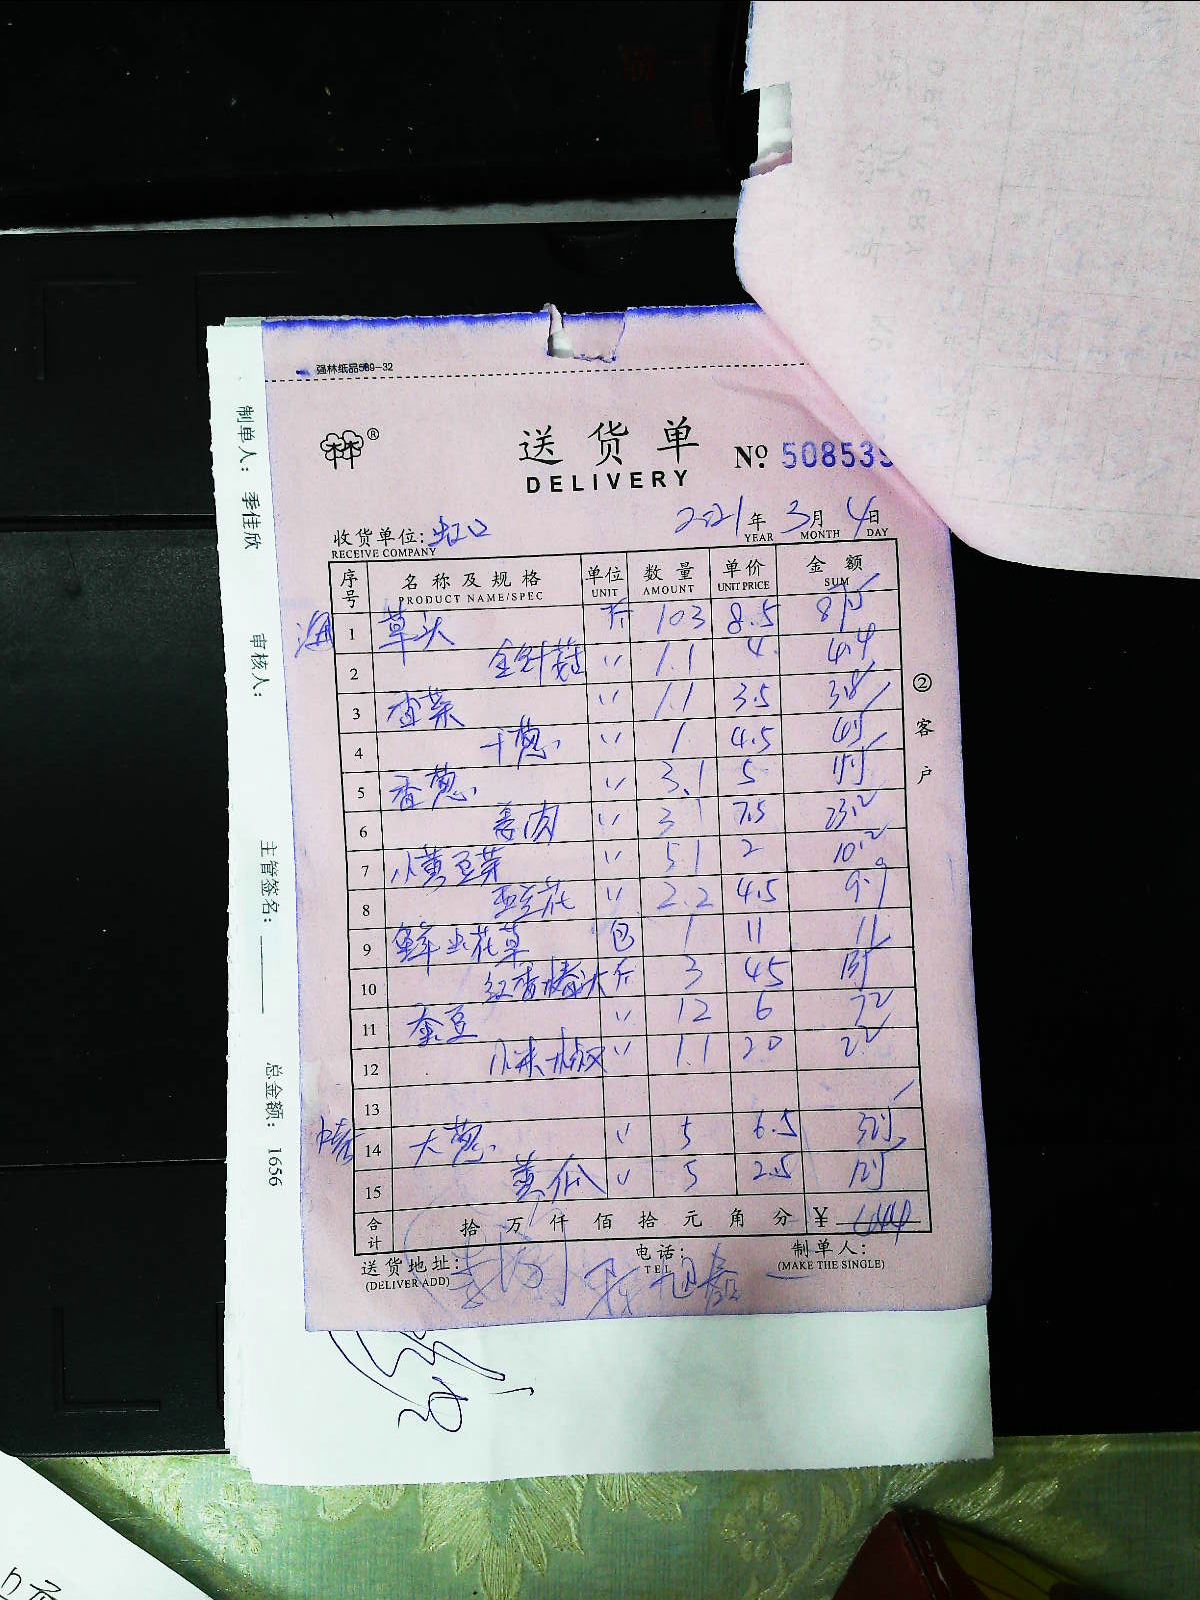 强林纸品589-32
送货单
DELIVERY
№ 508539
收货单位: 虹口
RECEIVE COMPANY
2021年 3月 4日
YEAR MONTH DAY
序号 名称及规格 单位 数量 单价 金额
PRODUCT NAME/SPEC UNIT AMOUNT UNIT PRICE SUM
1 草头 斤 103 8.5
2 金针菇 〃 1.1 4 4.4
3 香菜 〃 1.1 3.5 3.8
4 干葱 〃 1 4.5 4.5
5 香葱 〃 3.1 5
6 姜肉 〃 3.1 7.5 23.2
7 小黄豆芽 〃 5.1 2 10.2
8 〃 2.2 4.5 9.9
9 鲜虫花草 包 1 11 11
10 红香椿头 斤 3 45 135
11 蚕豆 〃 12 6 72
12 小米椒 〃 1.1 20 22
13
14 大葱 〃 5 6.5
15 黄瓜 〃 5 2.5
合计 拾万仟佰拾元角分 ¥
送货地址: 电话: 制单人:
(DELIVER ADD) TEL (MAKE THE SINGLE)
②客户
制单人: 季佳欣 审核人: 主管签名: 总金额: 1656